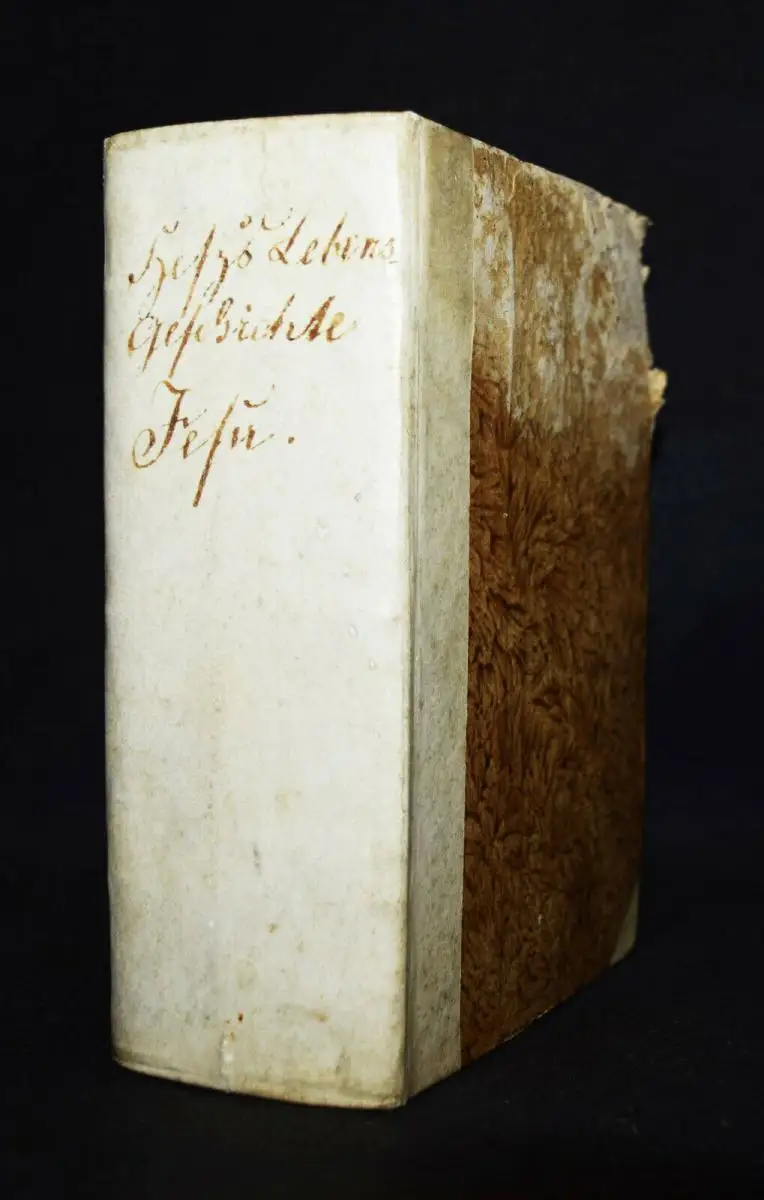 Heſzs Lebens-
Geſchichte
Jeſu.